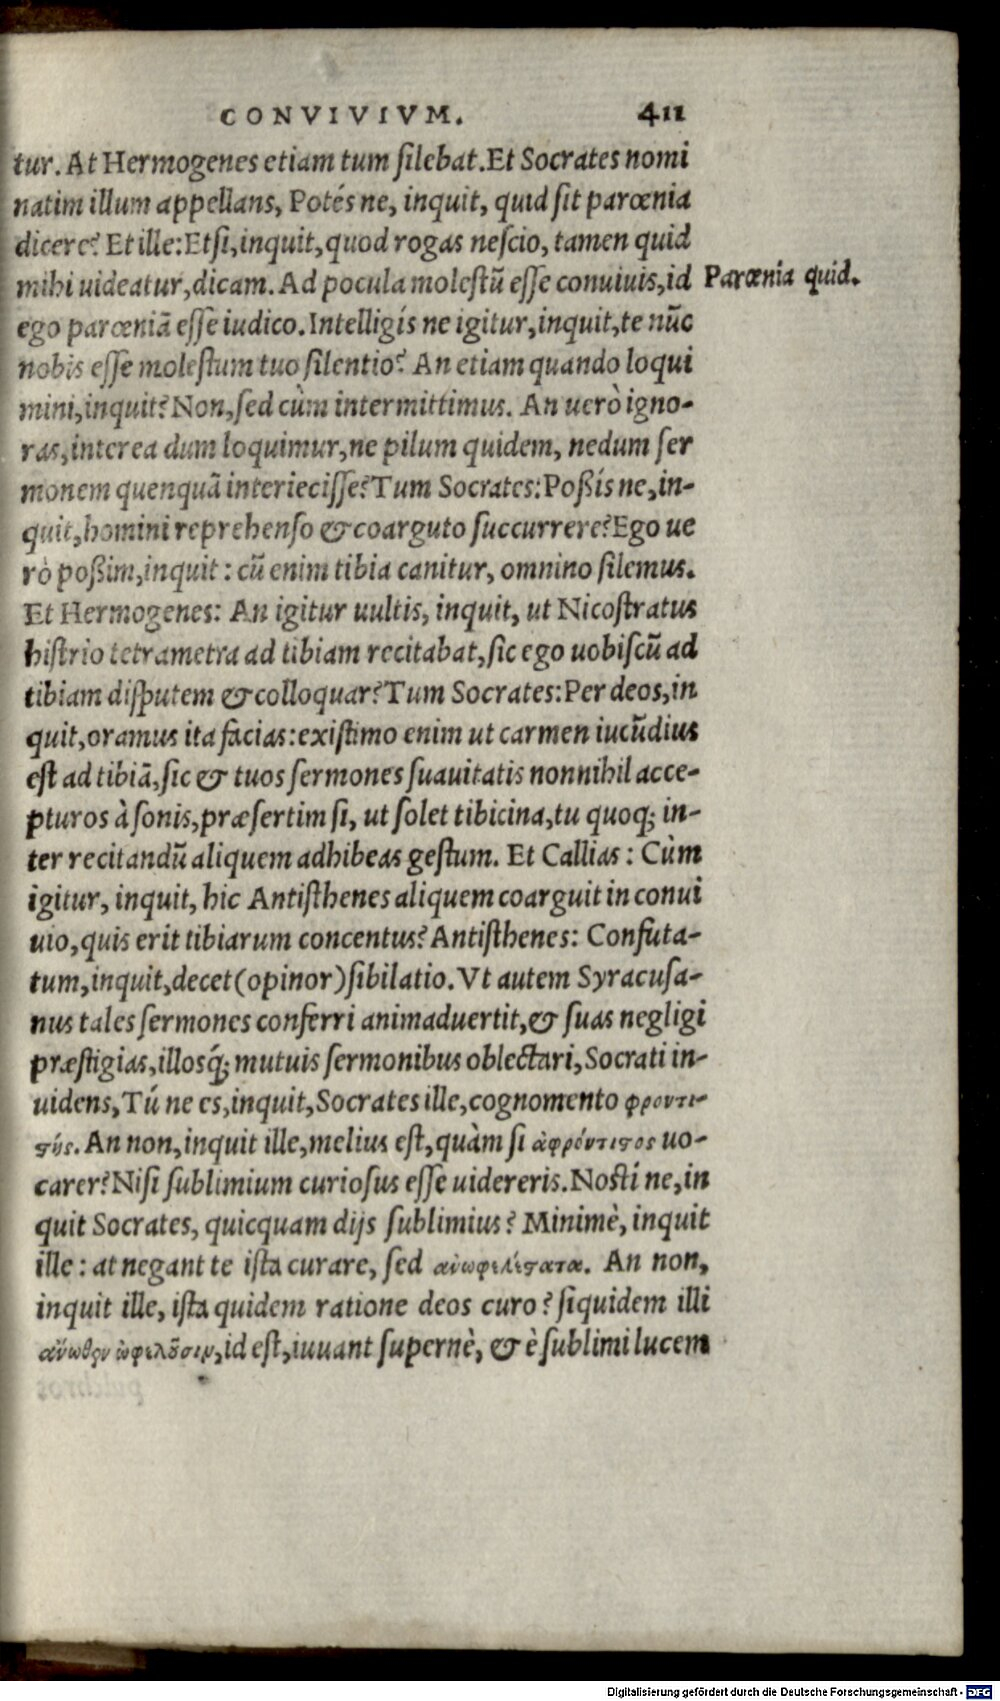 CONVIVIVM. 411
tur. At Hermogenes etiam tum silebat. Et Socrates nomi
natim illum appellans, Potés ne, inquit, quid sit parœnia
dicere? Et ille: Etsi, inquit, quod rogas nescio, tamen quid
mihi uideatur, dicam. Ad pocula molestũ esse conuiuis, id
Parœnia quid.
ego parœniã esse iudico. Intelligís ne igitur, inquit, te nũc
nobis esse molestum tuo silentio? An etiam quando loqui
mini, inquit? Non, sed cùm intermittimus. An uerò igno-
ras, interea dum loquimur, ne pilum quidem, nedum ser
monem quenquã interiecisse? Tum Socrates: Poßís ne, in-
quit, homini reprehenso & coarguto succurrere? Ego ue
rò poßim, inquit: cũ enim tibia canitur, omnino silemus.
Et Hermogenes: An igitur uultis, inquit, ut Nicostratus
histrio tetrametra ad tibiam recitabat, sic ego uobiscũ ad
tibiam disputem & colloquar? Tum Socrates: Per deos, in
quit, oramus ita facias: existimo enim ut carmen iucũdius
est ad tibiã, sic & tuos sermones suauitatis nonnihil acce-
pturos à sonis, præsertim si, ut solet tibicina, tu quoq; in-
ter recitandũ aliquem adhibeas gestum. Et Callias: Cùm
igitur, inquit, hic Antisthenes aliquem coarguit in conui
uio, quis erit tibiarum concentus? Antisthenes: Confuta-
tum, inquit, decet (opinor) sibilatio. Vt autem Syracusa-
nus tales sermones conferri animaduertit, & suas negligi
præstigias, illosq́; mutuis sermonibus oblectari, Socrati in-
uidens, Tú ne es, inquit, Socrates ille, cognomento φροντι-
ϛής. An non, inquit ille, melius est, quàm si ἀφρόντιϛος uo-
carer? Nisi sublimium curiosus esse uidereris. Ností ne, in
quit Socrates, quicquam dijs sublimius? Minimè, inquit
ille: at negant te ista curare, sed ανωφελέϛατα. An non,
inquit ille, ista quidem ratione deos curo? siquidem illi
ἄνωθεν ὠφελοῦσιν, id est, iuuant supernè, & è sublimi lucem
Digitalisierung gefördert durch die Deutsche Forschungsgemeinschaft - DFG